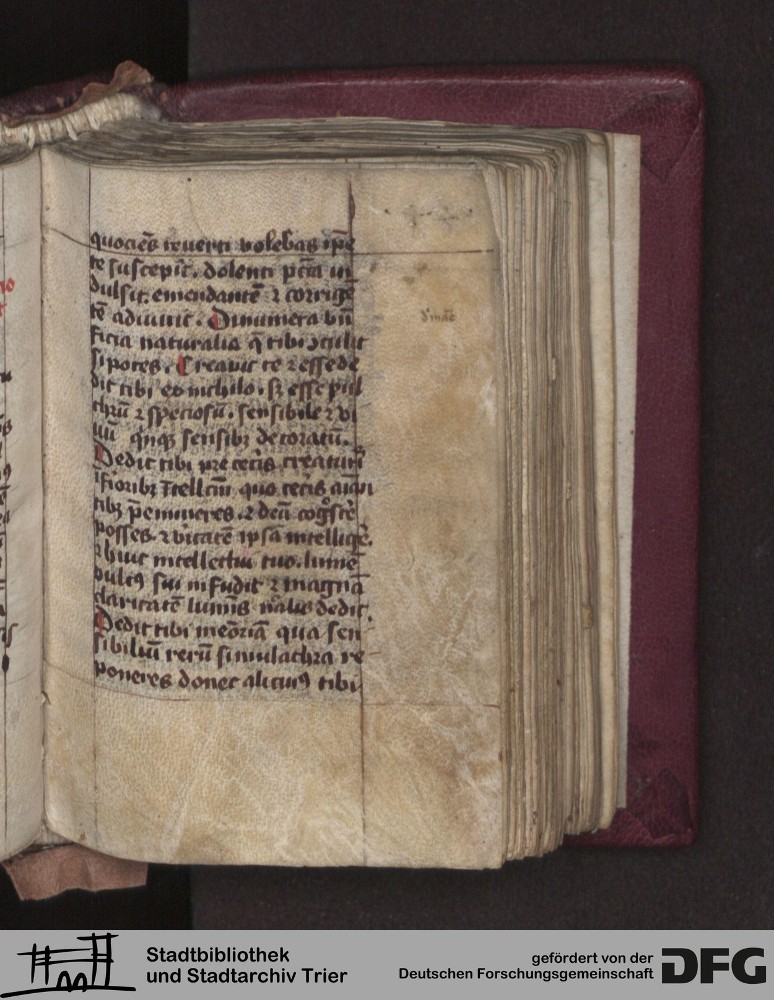 quociēs reuerti volebas ip̄e
te suscepit. dolenti p̄cīa in
dulsit. emendantē ⁊ corrigē
tē adiuuit. Dinumera bn̄
ficia naturalia q̄ tibi ꝯtulit
si potes. Creauit te ⁊ esse de
dit tibi ex nichilo. sꝫ esse pul
chrū ⁊ speciosū. sensibile ⁊ vi
uū qinqꝫ sensibꝫ decoratū.
Dedit tibi pre ceteris creaturis
īferioribꝫ ītellcm̄ quo ceteris aīan
tibꝫ p̄emineres. ⁊ deū cogͦscē
posses. ⁊ v̓itatē ip̄sā intelligē.
⁊ huic intellectui tuo. lumē
vultꝰ sui infudit ⁊ magnā
claritatē luminis nālis dedit.
Dedit tibi meōriā qua sen
sibiliū rerū simulachra re
poneres donec alicuiꝰ tibi
Stadtbibliothek
und Stadtarchiv Trier
gefördert von der
Deutschen Forschungsgemeinschaft
DFG